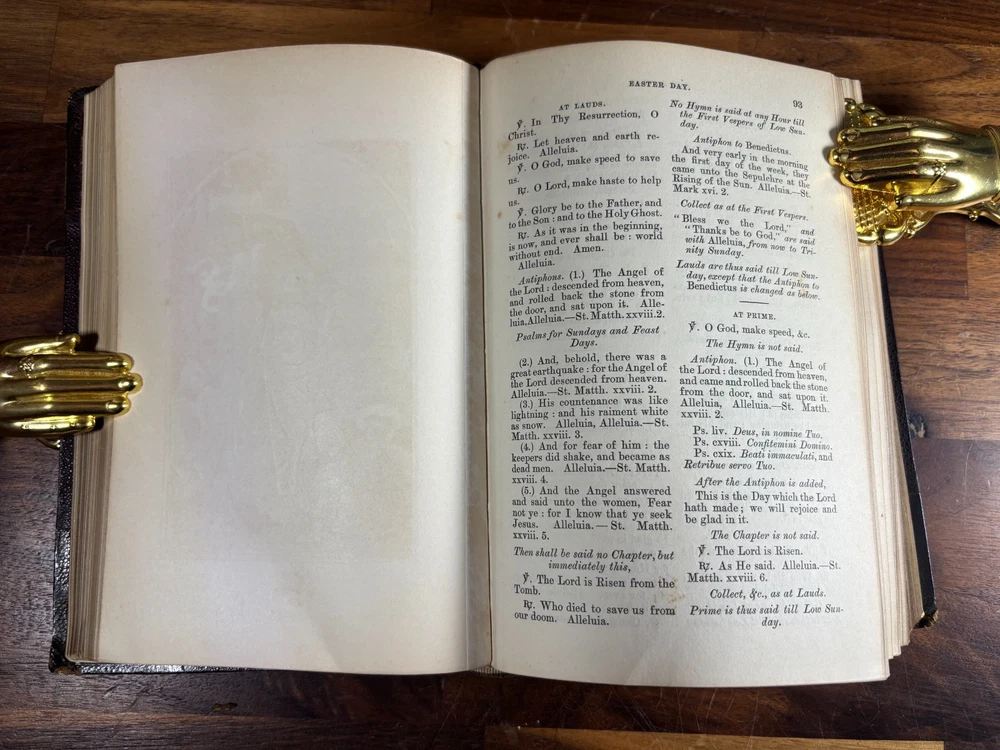 EASTER DAY.
93
AT LAUDS.
℣. In Thy Resurrection, O
Christ.
℟. Let heaven and earth re-
joice. Alleluia.
℣. O God, make speed to save
us.
℟. O Lord, make haste to help
us.
℣. Glory be to the Father, and
to the Son : and to the Holy Ghost.
℟. As it was in the beginning,
is now, and ever shall be : world
without end. Amen.
Alleluia.
Antiphons. (1.) The Angel of
the Lord : descended from heaven,
and rolled back the stone from
the door, and sat upon it. Alle-
luia, Alleluia.—St. Matth. xxviii. 2.
Psalms for Sundays and Feast
Days.
(2.) And, behold, there was a
great earthquake : for the Angel of
the Lord descended from heaven.
Alleluia.—St. Matth. xxviii. 2.
(3.) His countenance was like
lightning : and his raiment white
as snow. Alleluia, Alleluia.—St.
Matth. xxviii. 3.
(4.) And for fear of him : the
keepers did shake, and became as
dead men. Alleluia.—St. Matth.
xxviii. 4.
(5.) And the Angel answered
and said unto the women, Fear
not ye : for I know that ye seek
Jesus. Alleluia. — St. Matth.
xxviii. 5.
Then shall be said no Chapter, but
immediately this,
℣. The Lord is Risen from the
Tomb.
℟. Who died to save us from
our doom. Alleluia.
No Hymn is said at any Hour till
the First Vespers of Low Sun-
day.
Antiphon to Benedictus.
And very early in the morning
the first day of the week, they
came unto the Sepulchre at the
Rising of the Sun. Alleluia.—St.
Mark xvi. 2.
Collect as at the First Vespers.
"Bless we the Lord," and
"Thanks be to God," are said
with Alleluia, from now to Tri-
nity Sunday.
Lauds are thus said till Low Sun-
day, except that the Antiphon to
Benedictus is changed as below.
AT PRIME.
℣. O God, make speed, &c.
The Hymn is not said.
Antiphon. (1.) The Angel of
the Lord : descended from heaven,
and came and rolled back the stone
from the door, and sat upon it.
Alleluia, Alleluia.—St. Matth.
xxviii. 2.
Ps. liv. Deus, in nomine Tuo.
Ps. cxviii. Confitemini Domino.
Ps. cxix. Beati immaculati, and
Retribue servo Tuo.
After the Antiphon is added,
This is the Day which the Lord
hath made ; we will rejoice and
be glad in it.
The Chapter is not said.
℣. The Lord is Risen.
℟. As He said. Alleluia.—St.
Matth. xxviii. 6.
Collect, &c., as at Lauds.
Prime is thus said till Low Sun-
day.